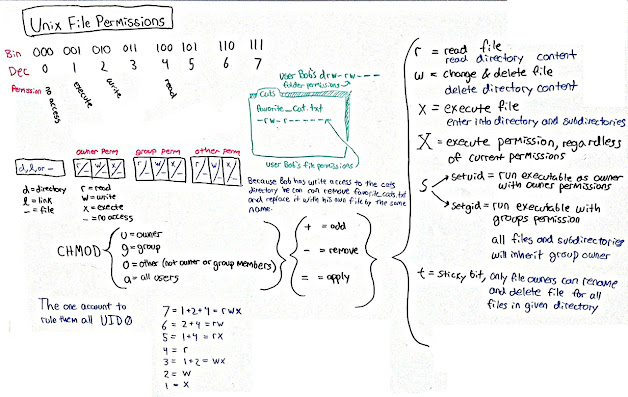 Unix File Permissions
Bin 000 001 010 011 100 101 110 111
Dec 0 1 2 3 4 5 6 7
Permission no access execute write read
user Bob's drw-rw----
folder permissions
Cats
favorite_Cat.txt
-rw-r-----
user Bob's file permissions
owner perm group perm other perm
d, l, or - r/- w/- x/- r/- w/- x/- r/- w/- x/-
d = directory
l = link
- = file
r = read
w = write
x = execte
- = no access
Because Bob has write access to the cats
directory he can can remove favorite_cats.txt
and replace it with his own file by the same
name.
CHMOD
u = owner
g = group
o = other (not owner or group members)
a = all users
+ = add
- = remove
= = apply
r = read file
read directory content
w = change & delete file
delete directory content
x = execute file
enter into directory and subdirectories
X = execute permission, regardless
of current permissions
s
setuid = run executable as owner
with owner permissions
setgid = run executable with
groups permission
all files and subdirectories
will inherit group owner
t = sticky bit, only file owners can rename
and delete file for all
files in given directory
The one account to
rule them all UID0
7 = 1+2+4 = rwx
6 = 2+4 = rw
5 = 1+4 = rx
4 = r
3 = 1+2 = wx
2 = w
1 = x